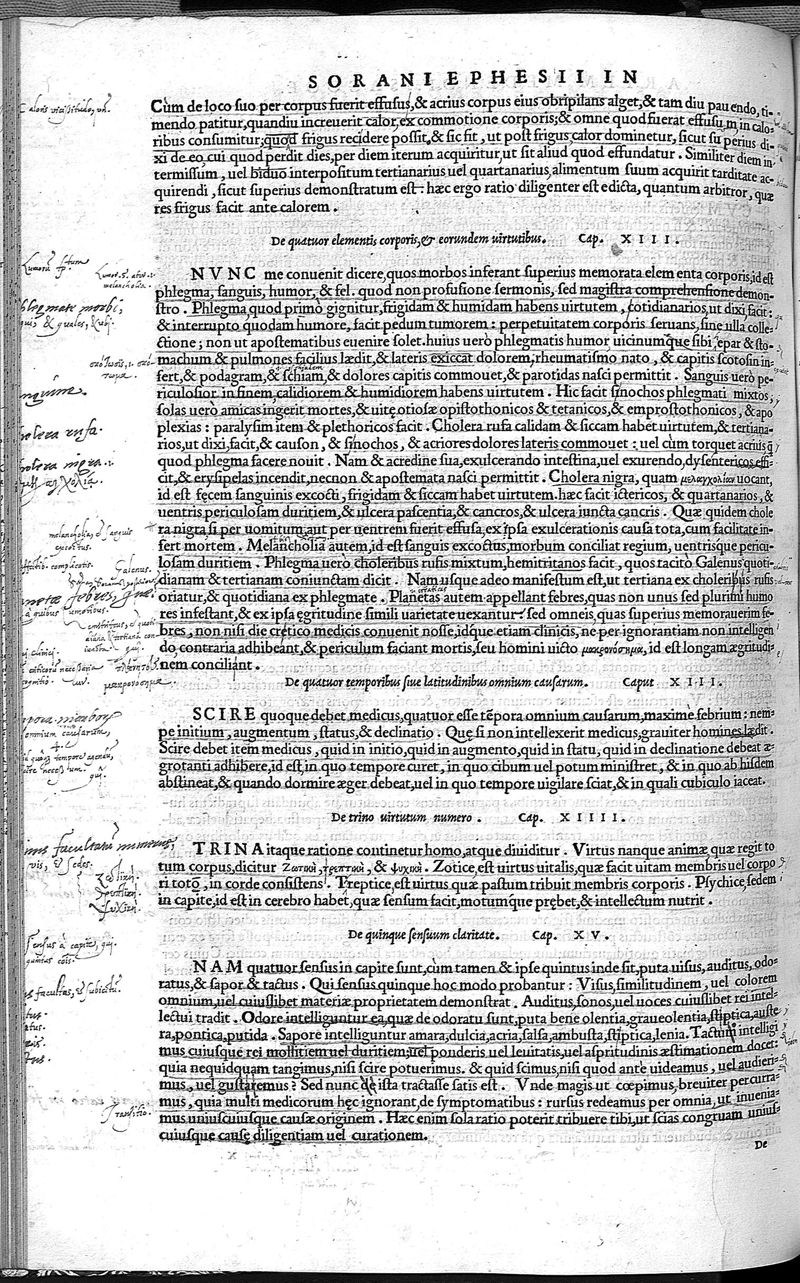 SORANI EPHESII IN
Cùm de loco suo per corpus fuerit effusus, & acrius corpus eius obripilans alget, & tam diu pauendo, ti-
mendo patitur, quandiu increuerit calor, ex commotione corporis; & omne quod fuerat effusum, in calo-
ribus consumitur; quod frigus recidere possit, & sic fit, ut post frigus calor dominetur, sicut superius di-
xi de eo, cui quod perdit dies, per diem iterum acquiritur, ut sit aliud quod effundatur. Similiter diem in-
termissum, uel biduo interpositum tertianarius uel quartanarius, alimentum suum acquirit tarditate ac-
quirendi, sicut superius demonstratum est: hæc ergo ratio diligenter est edicta, quantum arbitror, quæ
res frigus facit ante calorem.
De quatuor elementis corporis, & eorundem uirtutibus. Cap. XIII.
NVNC me conuenit dicere, quos morbos inferant superius memorata elementa corporis, id est
phlegma, sanguis, humor, & fel. quod non profusione sermonis, sed magistra comprehensione demon-
stro. Phlegma, quod primò gignitur, frigidam & humidam habens uirtutem, cotidianarios, ut dixi, facit:
& interrupto quodam humore, facit pedum tumorem: perpetuitatem corporis seruans, sine ulla colle-
ctione; non ut apostematibus euenire solet. huius uerò phlegmatis humor uicinumque sibi, epar & sto-
machum & pulmones facilius lædit, & lateris exiccat dolorem, rheumatismo nato, & capitis scotosin in-
fert, & podagram, & schiam, & dolores capitis commouet, & parotidas nasci permittit. Sanguis uerò pe-
riculosior in finem, calidiorem & humidiorem habens uirtutem. Hic facit sinochos phlegmati mixtos;
solas uerò amicas ingerit mortes, & uitę otiosæ opistothonicos & tetanicos, & emprosthonicos, & apo
plexias: paralysim item & plethoricos facit. Cholera rufa calidam & siccam habet uirtutem, & tertiana-
rios, ut dixi, facit, & causon, & sinochos, & acriores dolores lateris commouet: uel cum torquet acrius q̃
quod phlegma facere nouit. Nam & acredine sua, exulcerando intestina, uel exurendo, dysentericos effi-
cit, & erysipelas incendit, necnon & apostemata nasci permittit. Cholera nigra, quam μελαγχολίαν uocant,
id est fęcem sanguinis excocti, frigidam & siccam habet uirtutem. hæc facit ictericos, & quartanarios, &
uentris periculosam duritiem, & ulcera pascentia, & cancros, & ulcera iuncta cancris. Quæ quidem chole
ra nigra si per uomitum, aut per uentrem fuerit effusa, ex ipsa exulcerationis causa tota, cum facilitate in-
fert mortem. Melancholia autem, id est sanguis excoctus, morbum conciliat regium, uentrisque pericu-
losam duritiem. Phlegma uerò choleribus rufis mixtum, hemitritanos facit, quos tacitò Galenus quoti-
dianam & tertianam coniunctam dicit. Nam usque adeo manifestum est, ut tertiana ex choleribus rufis
oriatur, & quotidiana ex phlegmate. Planetas autem appellant febres, quas non unus sed plurimi humo
res infestant, & ex ipsa ęgritudine simili uarietate uexantur: sed omneis, quas superius memorauerim fe-
bres, non nisi die cretico medicis conuenit nosse, idque etiam clinicis, ne per ignorantiam non intelligen
do contraria adhibeant, & periculum faciant mortis, seu homini uicto μακρονόσημα, id est longam ægritudi-
nem conciliant.
De quatuor temporibus siue latitudinibus omnium causarum. Caput XIII.
SCIRE quoque debet medicus, quatuor esse tẽpora omnium causarum, maximè febrium: nem-
pe initium, augmentum, status, & declinatio. Quę si non intellexerit medicus, grauiter homines lædit.
Scire debet item medicus, quid in initio, quid in augmento, quid in statu, quid in declinatione debeat æ-
grotanti adhibere, id est, in quo tempore curet, in quo cibum uel potum ministret, & in quo ab hisdem
abstineat, & quando dormire æger debeat, uel in quo tempore uigilare sciat, & in quali cubiculo iaceat.
De trino uirtutum numero. Cap. XIIII.
TRINA itaque ratione continetur homo, atque diuiditur. Virtus nanque animæ, quæ regit to
tum corpus, dicitur ζωτικὴ, τρεπτικὴ, & ψυχικὴ. Zotice, est uirtus uitalis, quæ facit uitam membris uel corpo
ri toto, in corde consistens. Treptice, est uirtus quæ pastum tribuit membris corporis. Psychice, sedem
in capite, id est in cerebro habet, quæ sensum facit, motumque prębet, & intellectum nutrit.
De quinque sensuum claritate. Cap. XV.
NAM quatuor sensus in capite sunt, cùm tamen & ipse quintus inde sit, puta uisus, auditus, odo-
ratus, & sapor & tactus. Qui sensus quinque hoc modo probantur: Visus, similitudinem, uel colorem
omnium, uel cuiuslibet materiæ proprietatem demonstrat. Auditus, sonos, uel uoces cuiuslibet rei intel-
lectui tradit. Odore intelliguntur ea, quæ de odoratu sunt, puta bene olentia, graueolentia, stiptica, auste
ra, pontica, putida. Sapore intelliguntur amara, dulcia, acria, salsa, ambusta, stiptica, lenia. Tactum intelligi
mus cuiusque rei mollitiem uel duritiem, uel ponderis uel leuitatis, uel aspritudinis æstimationem docet:
quia nequidquam tangimus, nisi scire potuerimus. & quid scimus, nisi quod ante uideamus, uel audieri-
mus, uel gustaremus? Sed nunc de ista tractasse satis est. Vnde magis ut cœpimus, breuiter percurra-
mus, quia multi medicorum hęc ignorant, de symptomatibus: rursus redeamus per omnia, ut inuenia-
mus uniuscuiusque causæ originem. Hæc enim sola ratio poterit tribuere tibi, ut scias congruam unius-
cuiusque causę diligentiam uel curationem.
De
Galenus.
Transitio.